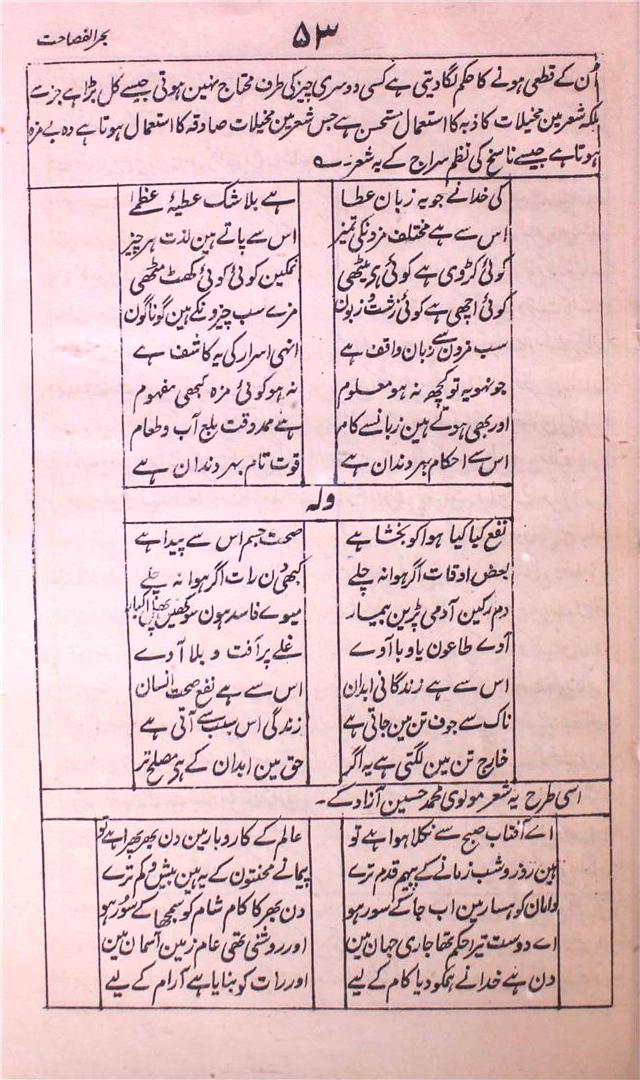 بحر الفصاحت
۵۳
اُن کے قطعی ہونے کا حکم لگا دیتی ہے کسی دوسری چیز کی طرف محتاج نہین ہوتی جیسے کل بڑا ہے جز سے
بلکہ شعر مین مخیلات کاذبہ کا استعمال مستحسن ہے جس شعر مین مخیلات صادقہ کا استعمال ہوتا ہے وہ بے مزہ
ہوتا ہے جیسے ناسخ کی نظم سراج کے یہ شعر۔
کی خدا نے جو یہ زبان عطا ہے بلا شک عطیۂ عظمٰی
اس سے ہے مختلف مزونکی تمیز اس سے پاتے ہین لذت ہر چیز
کوئی کڑوی ہے کوئی ہے میٹھی نمکین کوئی کوئی کھٹ مٹھی
کوئی اچھی ہے کوئی زشت و زبون مزے سب چیزونکے ہین گوناگون
سب مزون سے زبان واقف ہے انہی اسرار کی یہ کاشف ہے
جو نہو یہ تو کچھ نہ ہو معلوم نہ ہو کوئی مزہ کبھی مفہوم
اور بھی ہوتے ہین زبان سے کام ہے ممد وقت بلع آب و طعام
اس سے احکام ہر دندان ہے قوت تام بہر دندان ہے
ولہ
نفع کیا کیا ہوا کو بخشا ہے صحت جسم اس سے پیدا ہے
بعض اوقات اگر ہوا نہ چلے کبھی دن رات اگر ہوا نہ چلے
دم رکین آدمی پڑین بیمار میوے فاسد ہون سوکھین اکبار
آوے طاعون یا وبا آوے غلے پر آفت و بلا آوے
اس سے ہے زندگانی ابدان اس سے ہے نفع صحت انسان
ناک سے جوف تن مین جاتی ہے زندگی اس سبب سے آتی ہے
خارج تن مین لگتی ہے یہ اگر حق مین ابدان کے ہے مصلح تر
اسی طرح یہ شعر مولوی محمد حسین آزاد کے۔
اے آفتاب صبح سے نکلا ہوا ہے تو عالم کے کاروبار مین دن بھر پھرا ہے تو
ہین روز و شب زمانے کے پیہم قدم ترے پیمانے محنتون کے یہ ہین بیش و کم ترے
دامان کوہسار مین اب جا کے سو رہو دن بھر کا کام شام کو سمجھا کے سو رہو
اے دوست تیرا حکم تھا جاری جہان مین اور روشنی تھی عام زمین آسمان مین
دن ہے خدا نے ہمکو دیا کام کے لیے اور رات کو بنایا ہے آرام کے لیے